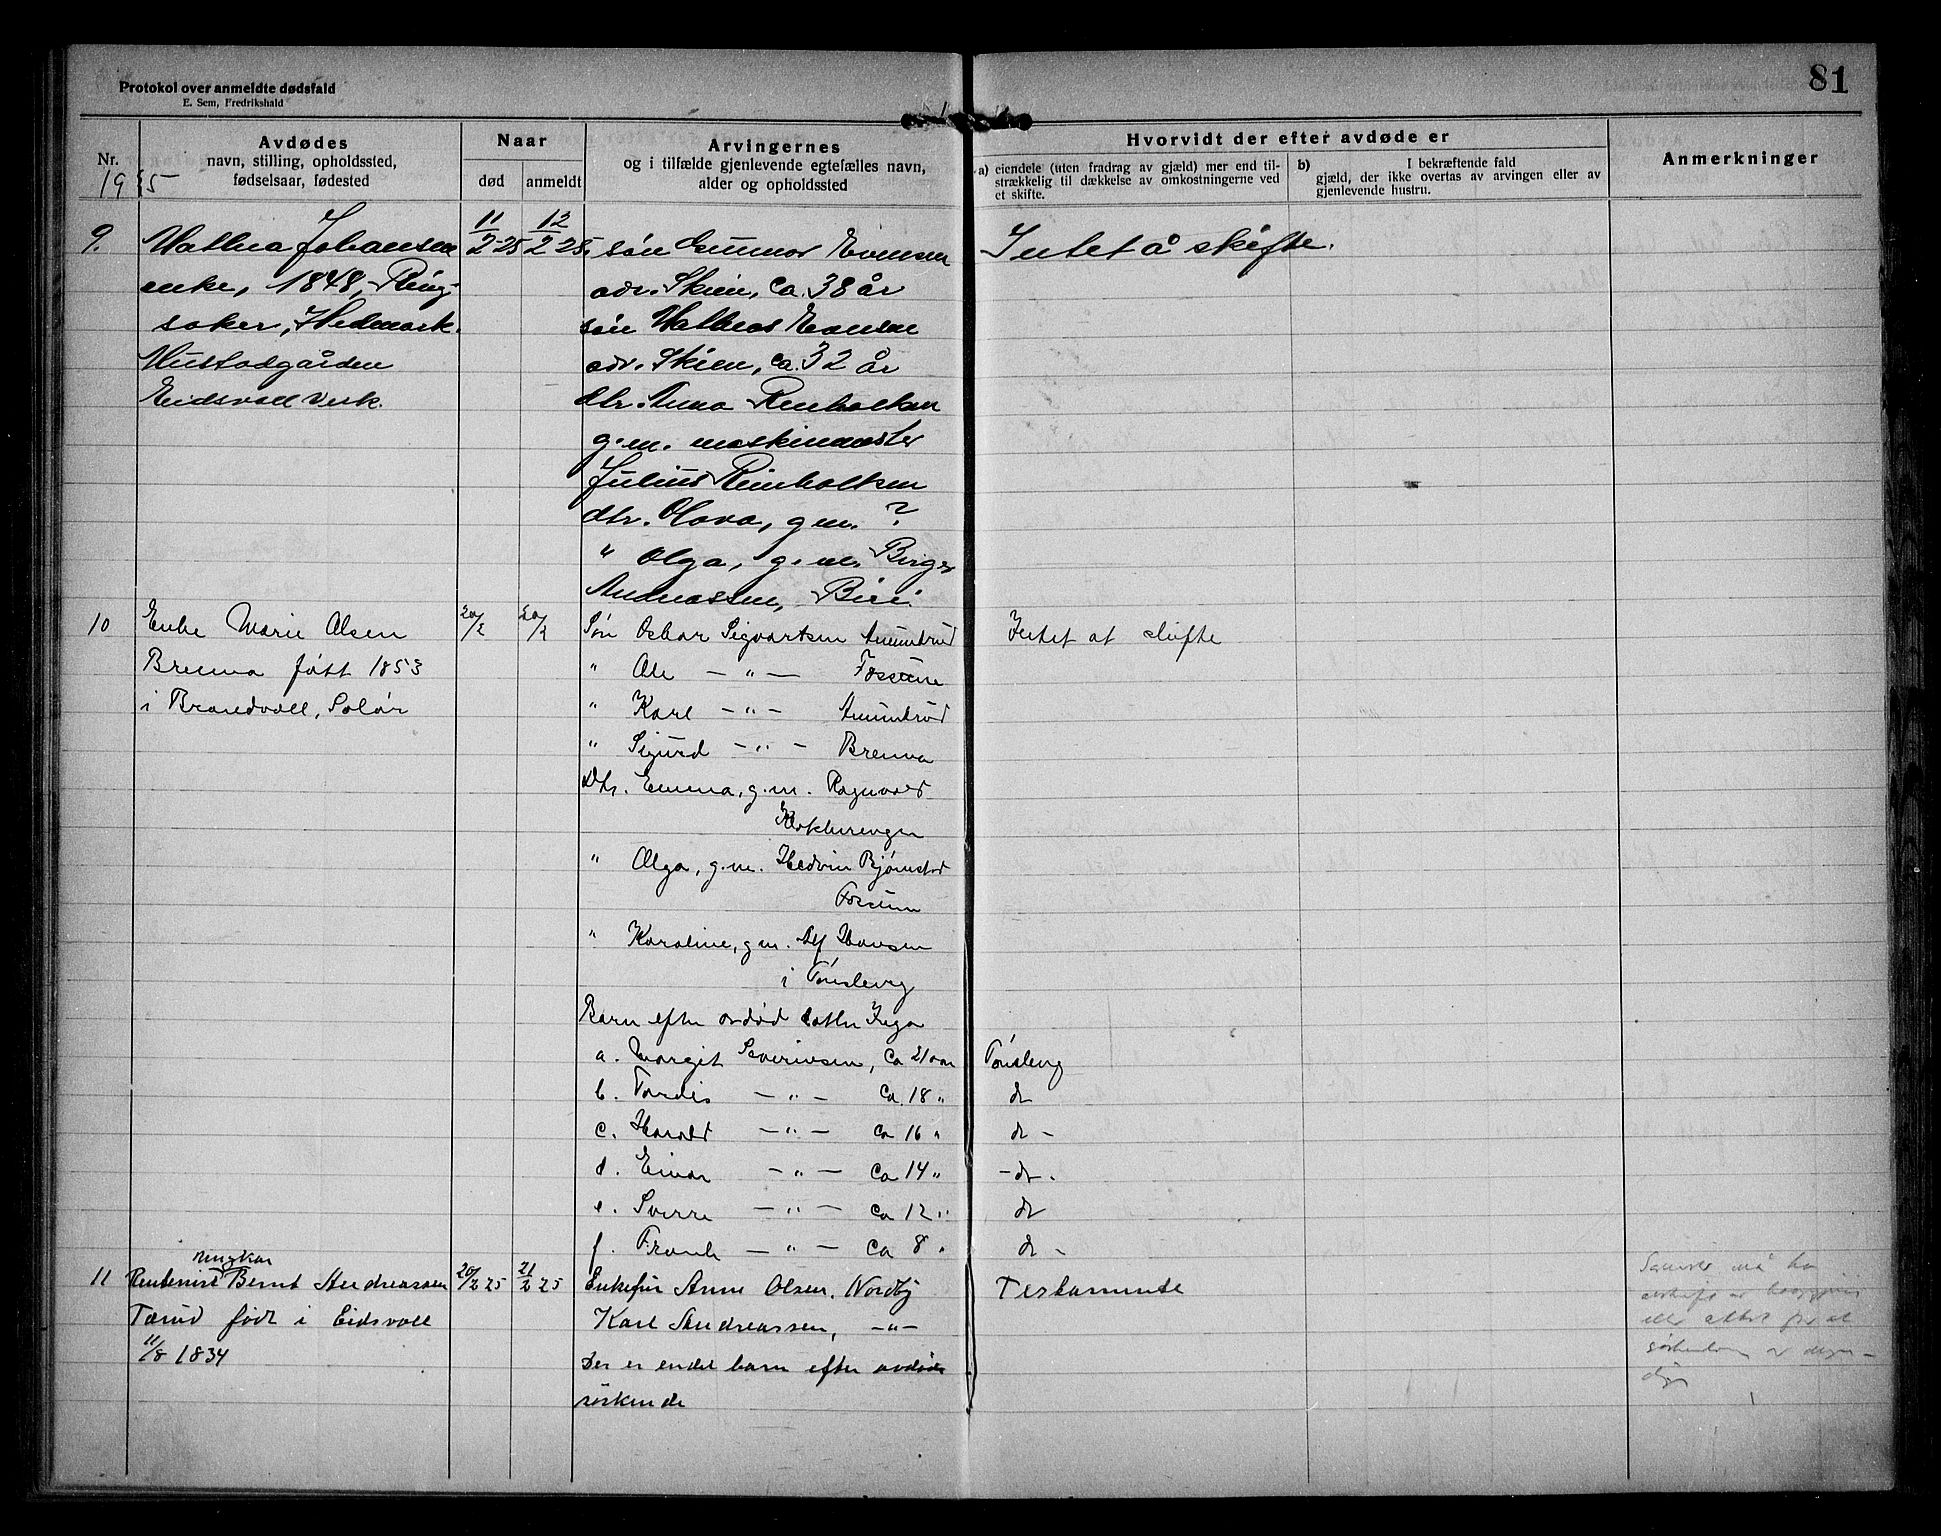 Protokol over anmeldte dødsfald
E. Sem, Fredrikshald
81
Nr.
1925
Avdødes
navn, stilling, opholdssted,
fødselsaar, fødested
Naar
død
anmeldt
Arvingernes
og i tilfælde gjenlevende egtefælles navn,
alder og opholdssted
Hvorvidt der efter avdøde er
a) eiendele (uten fradrag av gjæld) mer end til-
strækkelig til dækkelse av omkostningerne ved
et skifte.
b) I bekræftende fald
gjæld, der ikke overtas av arvingen eller av
gjenlevende hustru.
Anmerkninger
9. Mathea Johansen
enke, 1848, Ring-
saker, Hedmark.
Mustadgården
Eidsvoll verk.
11/2-25
12/2 25.
søn Gunnar Evensen
adr. Skien, ca. 38 år
søn Mathias Evensen
adr. Skien, ca. 32 år
dtr. Anna Reinholtsen
g.m. maskinmester
Julius Reinholtsen
dtr. Olava, g.m. ?
" Olga, g.m. Birger
Andreassen, Biri.
Intet å skifte.
10 Enke Marie Olsen
Brenna født 1853
i Brandvoll, Solør
20/2
20/2
Søn Oskar Sigvartsen Amundrud
" Ole — " — Fossum
" Karl — " — Amundrud
" Sigurd — " — Brenna
Dtr. Emma, g.m. Ragnvald
" Olga, g.m. Hedvin Bjørnstad
Fossum
" Karoline, g.m. Alf Hansen
i Tønsberg
Barn efter avdød datter Inga
a. Margit Severinsen, ca 21 aar
b. Tordis — " — ca. 18 "
c. Harald — " — ca 16 "
d. Einar — " — ca 14 "
e. Sverre — " — ca 12 "
f. Frank — " — ca 8 "
Intet at skifte
Tønsberg
do
do -
- do.
do
do -
11 ungkar
Rentenist Bernt Andreassen
Tærud født i Eidsvoll
11/8 1834
20/2 25
21/2 25
Enkefru Anne Olsen, Nordby
Karl Andreassen, — " —
Der er endel barn efter avdøde
søskende
Testamente